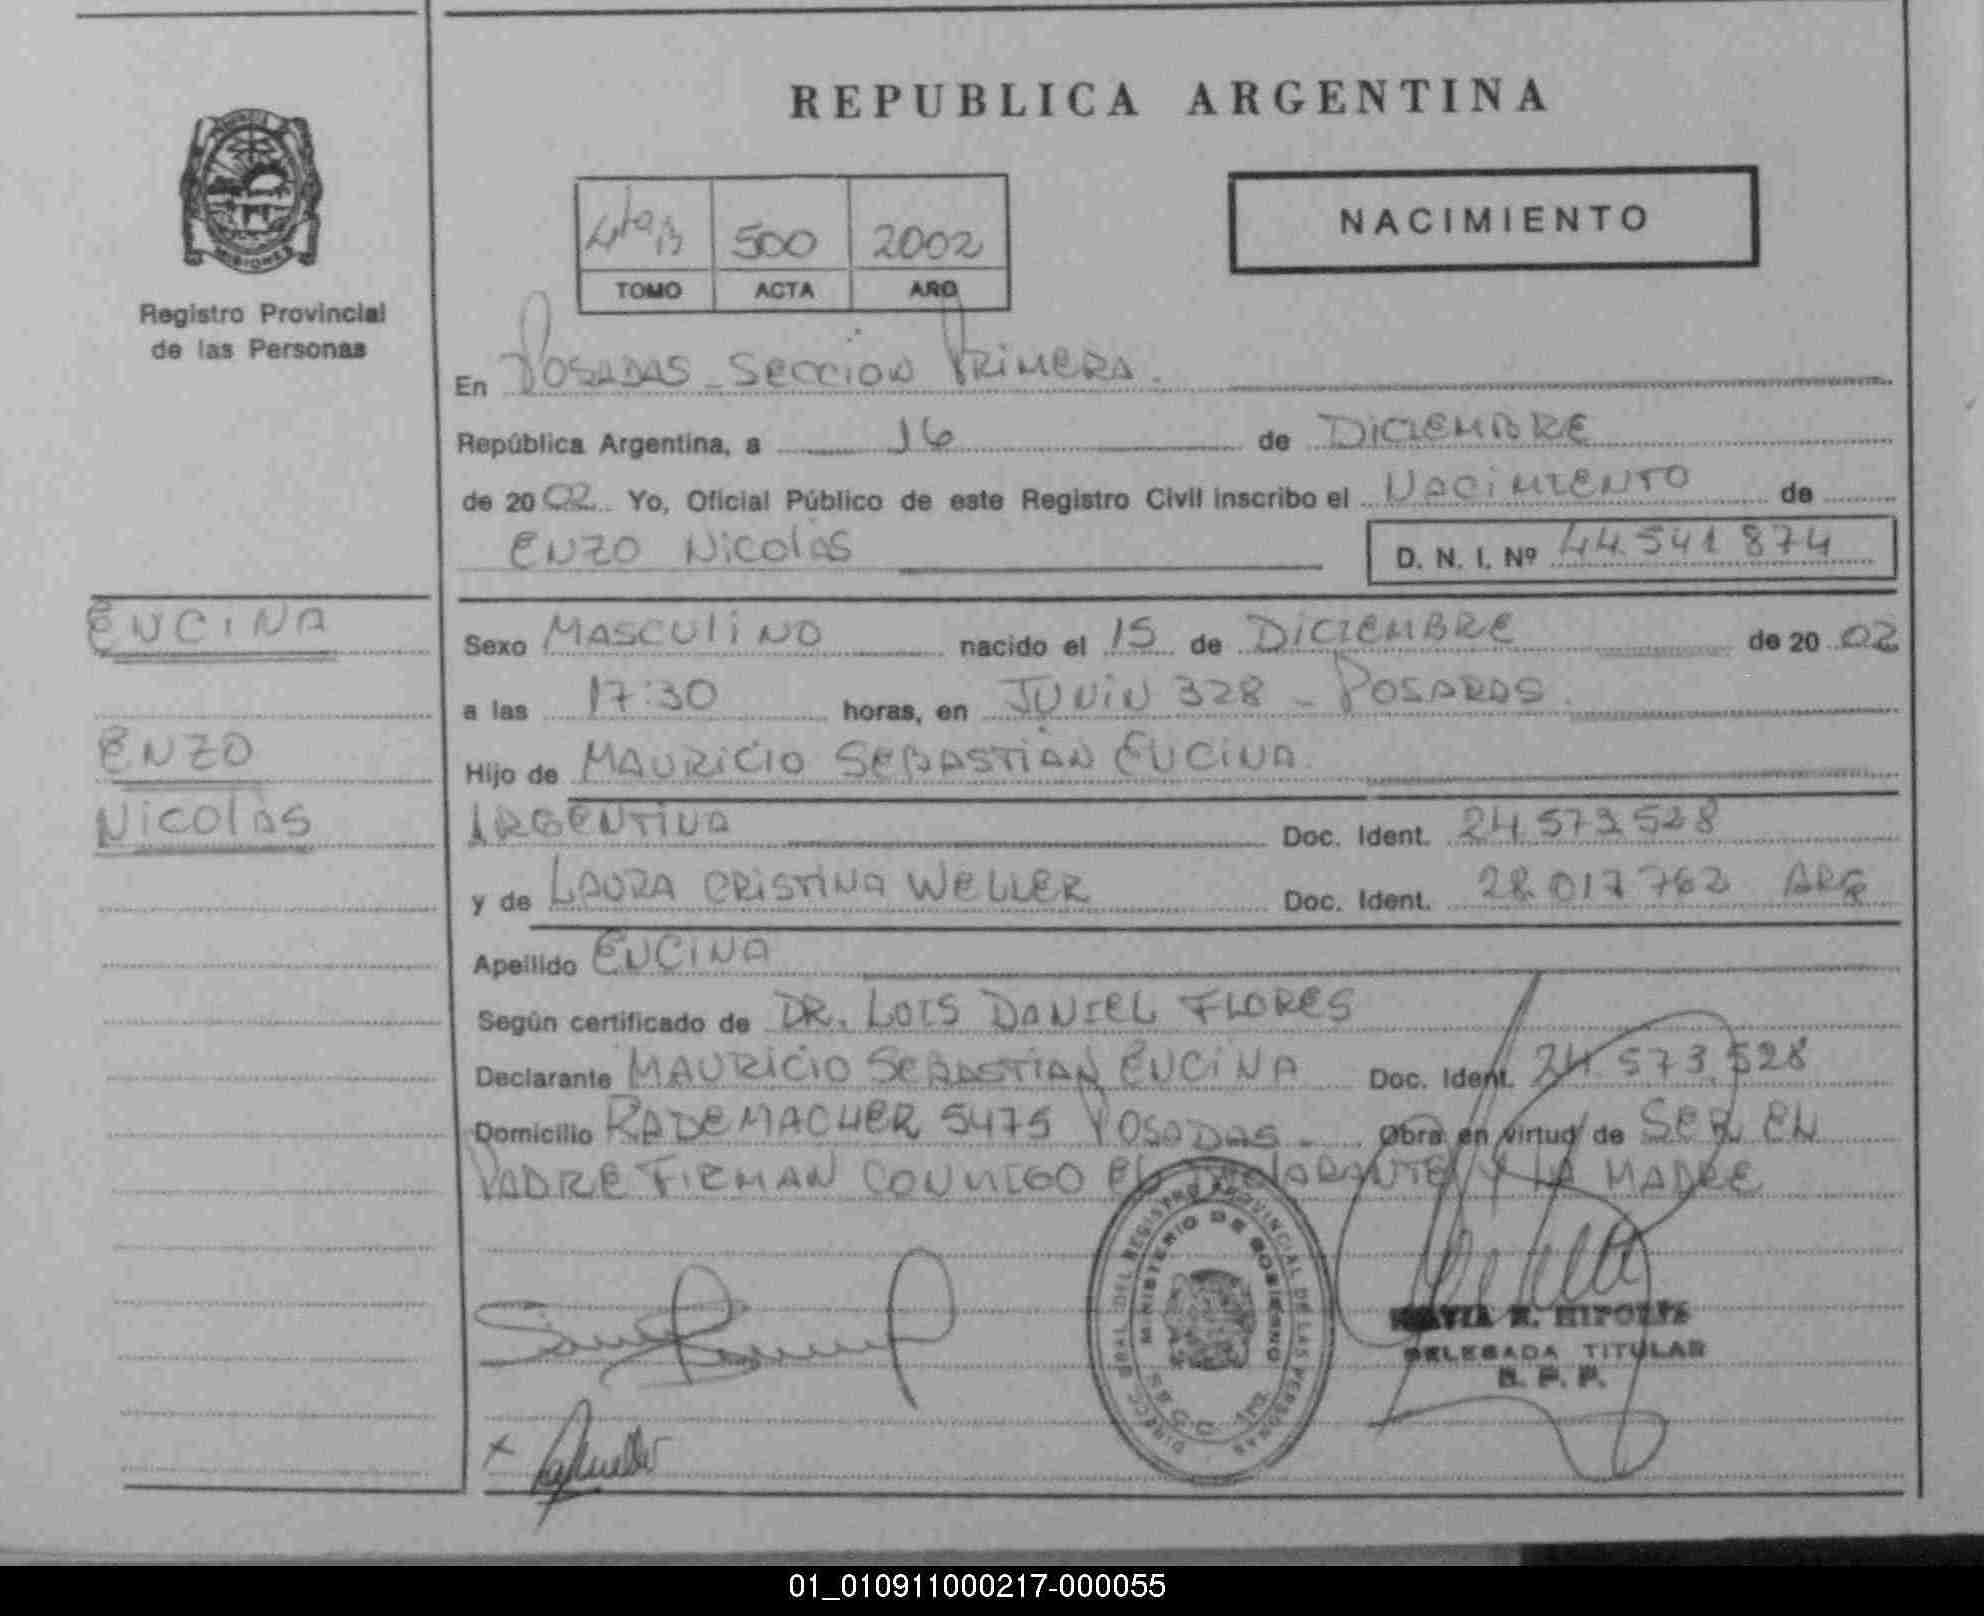 REPUBLICA ARGENTINA
NACIMIENTO
4to B 500 2002
TOMO ACTA AÑO
MISIONES
Registro Provincial
de las Personas
En POSADAS - SECCION PRIMERA.
República Argentina, a 16 de DICIEMBRE
de 2002 Yo, Oficial Público de este Registro Civil inscribo el NACIMIENTO de
ENZO NICOLÁS D. N. I. Nº 44.541.874
ENCINA
ENZO
NICOLÁS
Sexo MASCULINO nacido el 15 de DICIEMBRE de 2002
a las 17:30 horas, en JUNIN 328 - POSADAS.
Hijo de MAURICIO SEBASTIÁN ENCINA.
ARGENTINA Doc. Ident. 24.573.528
y de LAURA CRISTINA WELLER Doc. Ident. 28.017.762 ARG
Apellido ENCINA
Según certificado de DR. LUIS DANIEL FLORES
Declarante MAURICIO SEBASTIAN ENCINA Doc. Ident. 24.573.528
Domicilio RADEMACHER 5475 POSADAS - Obra en virtud de SER EL
PADRE FIRMAN CONMIGO EL DECLARANTE Y LA MADRE
DIRECC. GRAL. DEL REGISTRO PROVINCIAL DE LAS PERSONAS
MINISTERIO DE GOBIERNO
DELEGADA TITULAR
R. P. P.
01_010911000217-000055